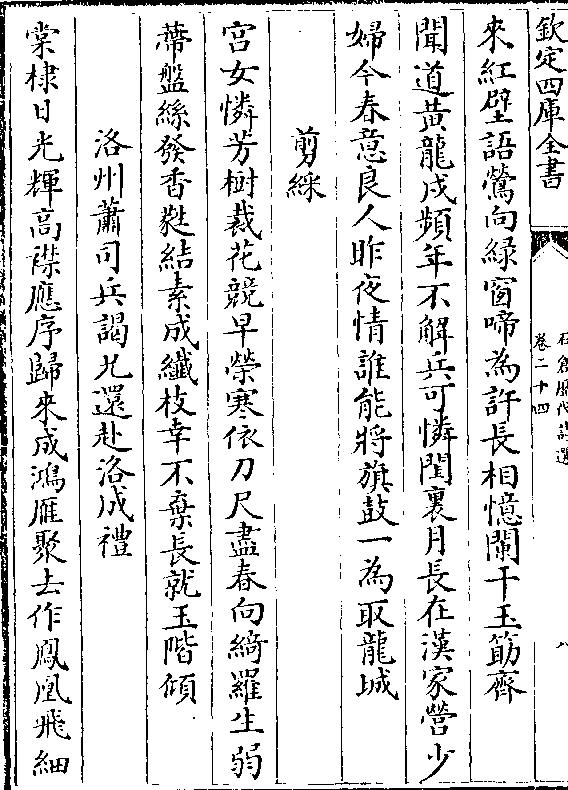 欽定四庫全書
石倉歷代詩選
卷二十四
八
來紅壁語鶯向綠窗啼為許長相憶闌干玉筯齊
聞道黃龍戍頻年不解兵可憐閨裏月長在漢家營少
婦今春意良人昨夜情誰能將旗鼓一為取龍城
剪綵
宮女憐芳樹裁花競早榮寒依刀尺盡春向綺羅生弱
蔕盤絲發香蕤結素成纖枝幸不棄長就玉階傾
洛州蕭司兵謁兄還赴洛成禮
棠棣日光輝高襟應序歸來成鴻雁聚去作鳳凰飛細